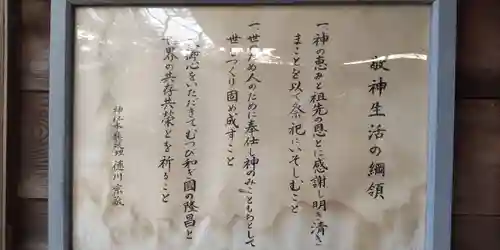 敬神生活の綱領
一 神の恵みと祖先の恩とに感謝し明き清き
まことを以て祭祀にいそしむこと
一 世のため人のために奉仕し神のみこともちとして
世をつくり固め成すこと
一 大御心をいただきてむつび和ぎ国の隆昌と
世界の共存共栄とを祈ること
神社本庁統理 徳川宗敬